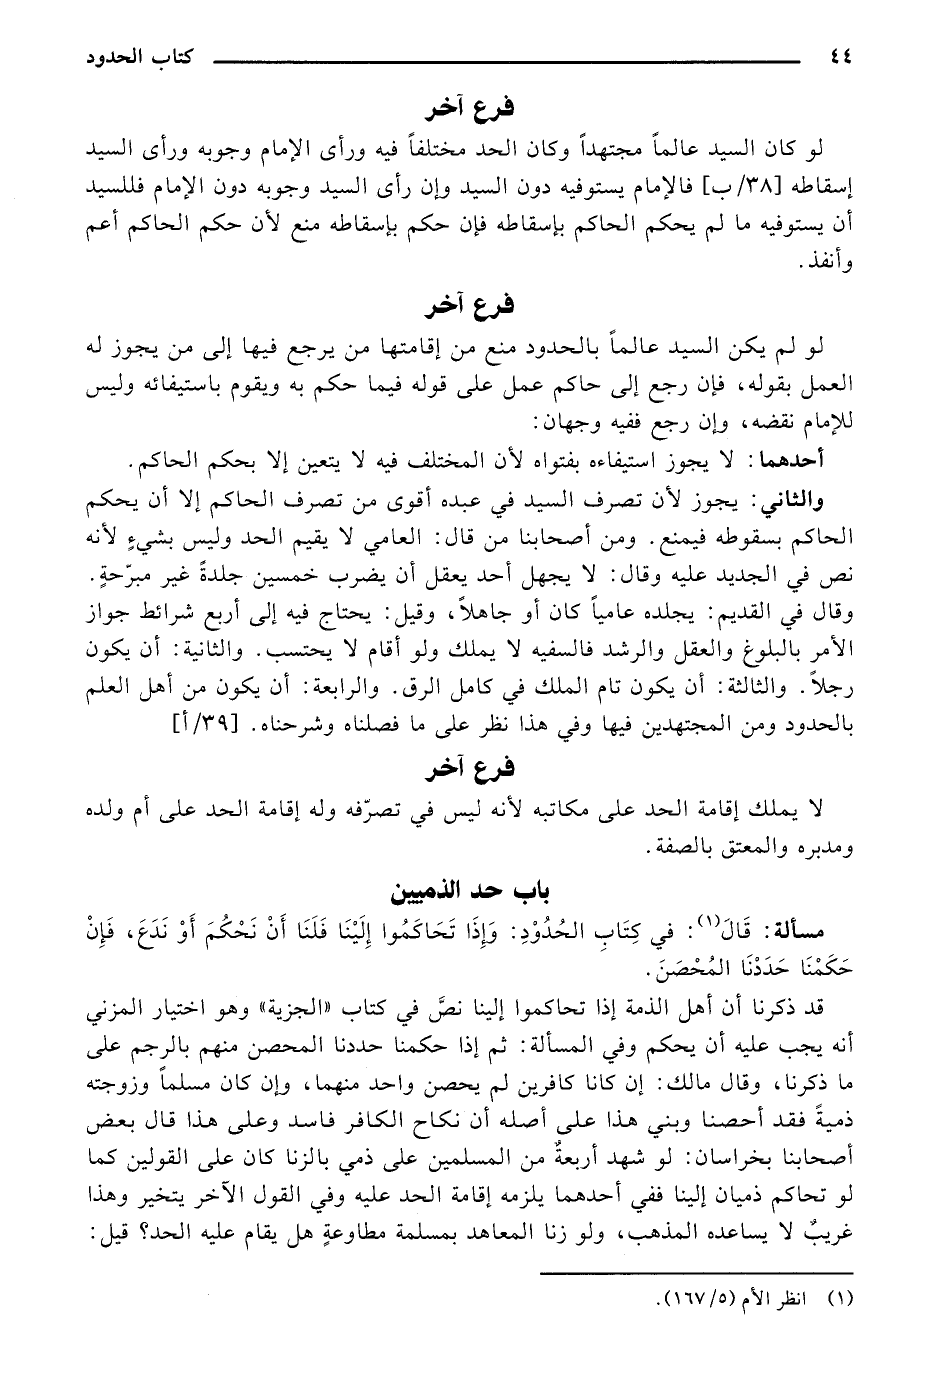 ٤٤ كتاب الحدود
فرع آخر
لو كان السيد عالماً مجتهداً وكان الحد مختلفاً فيه ورأى الإمام وجوبه ورأى السيد
إسقاطه [٣٨/ ب] فالإمام يستوفيه دون السيد وإن رأى السيد وجوبه دون الإمام فللسيد
أن يستوفيه ما لم يحكم الحاكم بإسقاطه فإن حكم بإسقاطه منع لأن حكم الحاكم أعم
وأنفذ.
فرع آخر
لو لم يكن السيد عالماً بالحدود منع من إقامتها من يرجع فيها إلى من يجوز له
العمل بقوله، فإن رجع إلى حاكم عمل على قوله فيما حكم به ويقوم باستيفائه وليس
للإمام نقضه، وإن رجع ففيه وجهان:
أحدهما: لا يجوز استيفاءه بفتواه لأن المختلف فيه لا يتعين إلا بحكم الحاكم.
والثاني: يجوز لأن تصرف السيد في عبده أقوى من تصرف الحاكم إلا أن يحكم
الحاكم بسقوطه فيمنع. ومن أصحابنا من قال: العامي لا يقيم الحد وليس بشيءٍ لأنه
نص في الجديد عليه وقال: لا يجهل أحد يعقل أن يضرب خمسين جلدةً غير مبرّحةٍ.
وقال في القديم: يجلده عامياً كان أو جاهلاً، وقيل: يحتاج فيه إلى أربع شرائط جواز
الأمر بالبلوغ والعقل والرشد فالسفيه لا يملك ولو أقام لا يحتسب. والثانية: أن يكون
رجلاً. والثالثة: أن يكون تام الملك في كامل الرق. والرابعة: أن يكون من أهل العلم
بالحدود ومن المجتهدين فيها وفي هذا نظر على ما فصلناه وشرحناه. [٣٩/ أ]
فرع آخر
لا يملك إقامة الحد على مكاتبه لأنه ليس في تصرّفه وله إقامة الحد على أم ولده
ومدبره والمعتق بالصفة.
باب حد الذميين
مسألة: قَالَ(١): في كِتَابِ الحُدُوْدِ: وَإِذَا تَحَاكَمُوا إِلَيْنَا فَلَنَا أَنْ نَحْكُمَ أَوْ نَدَعَ، فَإِنْ
حَكَمْنَا حَدَدْنَا المُحْصَنَ.
قد ذكرنا أن أهل الذمة إذا تحاكموا إلينا نصَّ في كتاب «الجزية» وهو اختيار المزني
أنه يجب عليه أن يحكم وفي المسألة: ثم إذا حكمنا حددنا المحصن منهم بالرجم على
ما ذكرنا، وقال مالك: إن كانا كافرين لم يحصن واحد منهما، وإن كان مسلماً وزوجته
ذميةً فقد أحصنا وبني هذا على أصله أن نكاح الكافر فاسد وعلى هذا قال بعض
أصحابنا بخراسان: لو شهد أربعةٌ من المسلمين على ذمي بالزنا كان على القولين كما
لو تحاكم ذميان إلينا ففي أحدهما يلزمه إقامة الحد عليه وفي القول الآخر يتخير وهذا
غريبٌ لا يساعده المذهب، ولو زنا المعاهد بمسلمة مطاوعةٍ هل يقام عليه الحد؟ قيل:
(١) انظر الأم (٥/ ١٦٧).